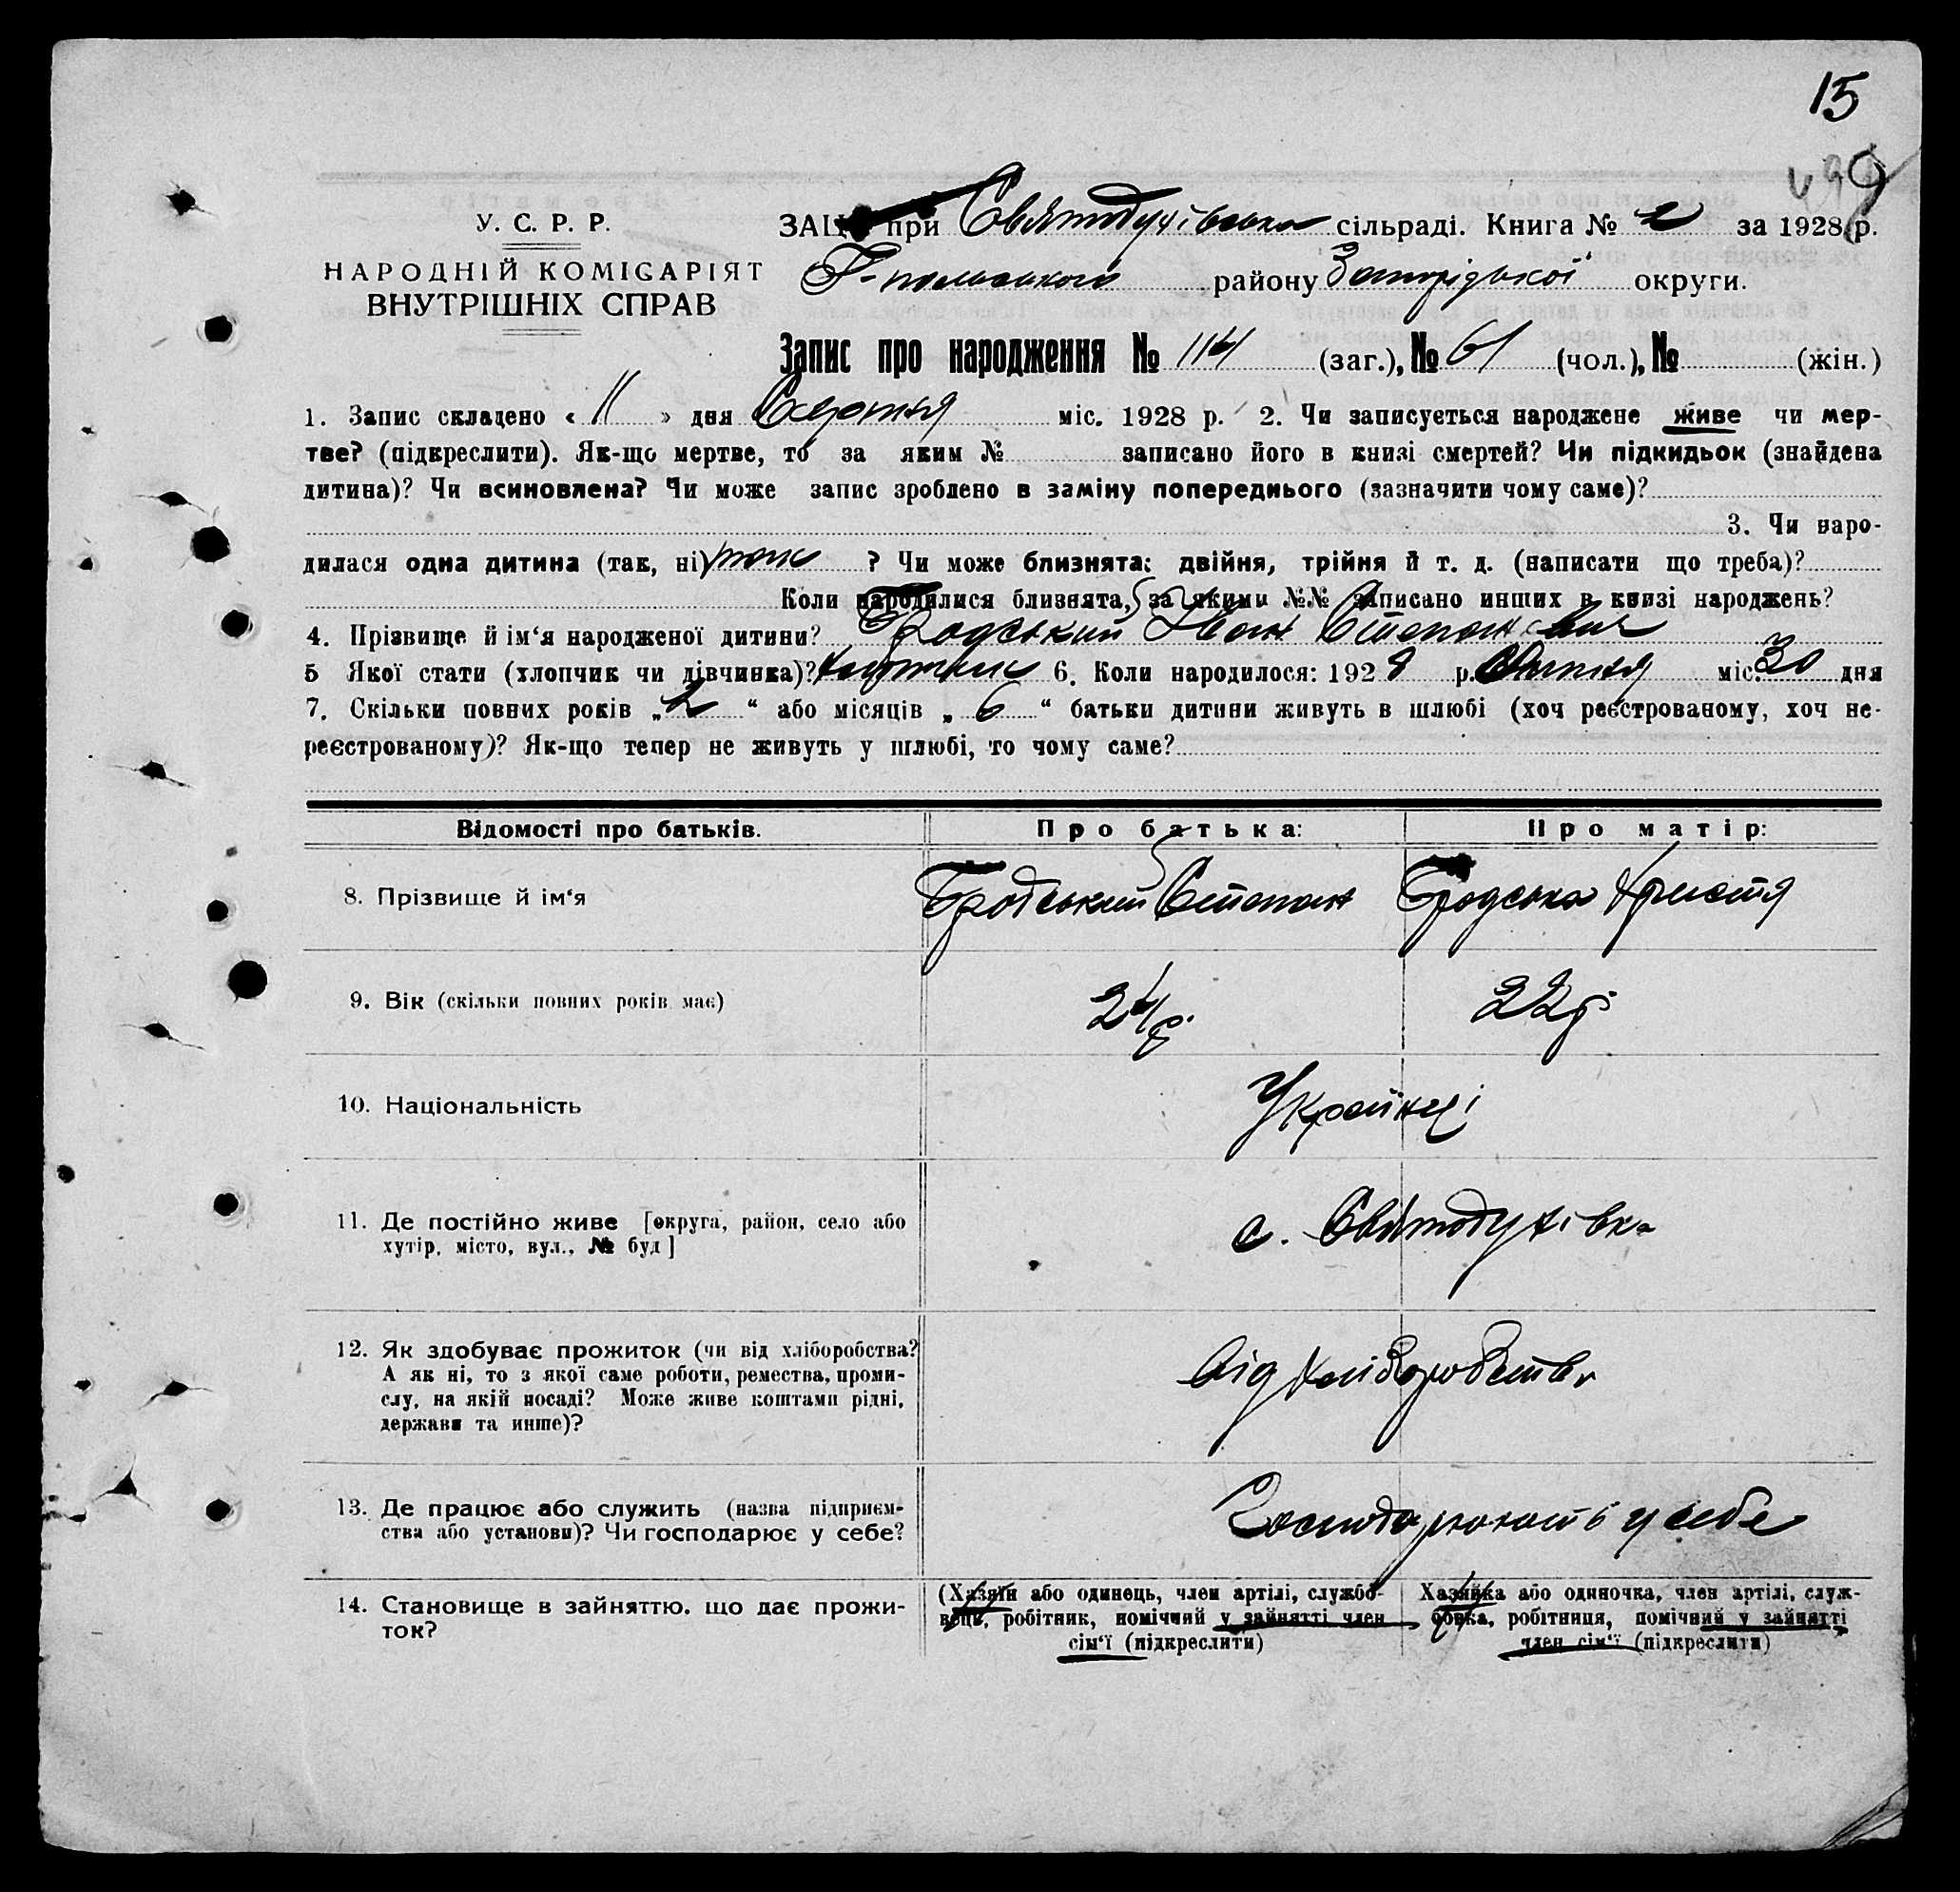 15
499
У. С. Р. Р.
НАРОДНІЙ КОМІСАРІЯТ
ВНУТРІШНІХ СПРАВ
ЗАЦС при Святодухівська сільраді. Книга № 2 за 1928 р.
району Запорізької округи.
Запис про народження № 114 (заг.), № 61 (чол.), № (жін.)
1. Запис складено « 11 » дня Серпня міс. 1928 р. 2. Чи записується народжене живе чи мер-
тве? (підкреслити). Як-що мертве, то за яким № записано його в книзі смертей? Чи підкидьок (знайдена
дитина)? Чи всиновлена? Чи може запис зроблено в заміну попереднього (зазначити чому саме)?
3. Чи наро-
дилася одна дитина (так, ні) так ? Чи може близнята: двійня, трійня й т. д. (написати що треба)?
Коли народилися близнята, за якими №№ записано инших в книзі народжень?
4. Прізвище й ім‘я народженої дитини? Бродський Іван Степанович
5 Якої стати (хлопчик чи дівчинка)? хлопчик 6. Коли народилося: 1928 р. Липня міс. 30 дня
7. Скільки повних років „ 2 “ або місяців „ 6 “ батьки дитини живуть в шлюбі (хоч реєстрованому, хоч не-
реєстрованому)? Як-що тепер не живуть у шлюбі, то чому саме?
Відомості про батьків. Про батька: Про матір:
8. Прізвище й ім‘я Бродський Степан Бродська Христя
9. Вік (скільки повних років має) 24 р. 22 р.
10. Національність Українці
11. Де постійно живе [округа, район, село або
хутір, місто, вул., № буд] с. Святодухівка
12. Як здобуває прожиток (чи від хліборобства?
А як ні, то з якої саме роботи, ремества, проми-
слу, на якій посаді? Може живе коштами рідні,
держави та инше)? Від хліборобства
13. Де працює або служить (назва підприєм-
ства або установи)? Чи господарює у себе? Господарюють у себе
14. Становище в зайняттю, що дає прожи-
ток?
(Хазяїн або одинець, член артілі, службо-
вець, робітник, помічний у зайнятті член
сім‘ї (підкреслити)
Хазяйка або одиночка, член артілі, служ-
бовка, робітниця, помічний у зайнятті
член сім‘ї (підкреслити)